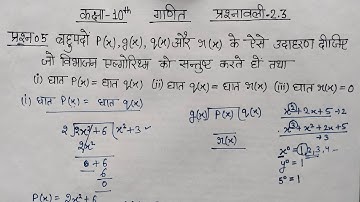 कक्षा-10th गणित प्रश्नावली-2.3
प्रश्न 05 बहुपदों P(x), g(x), q(x) और r(x) के ऐसे उदाहरण दीजिए
जो विभाजन एल्गोरिथ्म को सन्तुष्ट करते हों तथा
(i) घात P(x) = घात q(x) (ii) घात q(x) = घात r(x) (iii) घात r(x) = 0
(i) घात P(x) = घात q(x)
g(x) P(x) q(x)
r(x)
2 2x²+6 x²+3
2x²
6
6
0
P(x) = 2x²+6
x²+2x+5 → 2
x³+x²+2x+5
→3
x⁰ = 1, 2, 3, 4
y⁰ = 1
5⁰ = 1